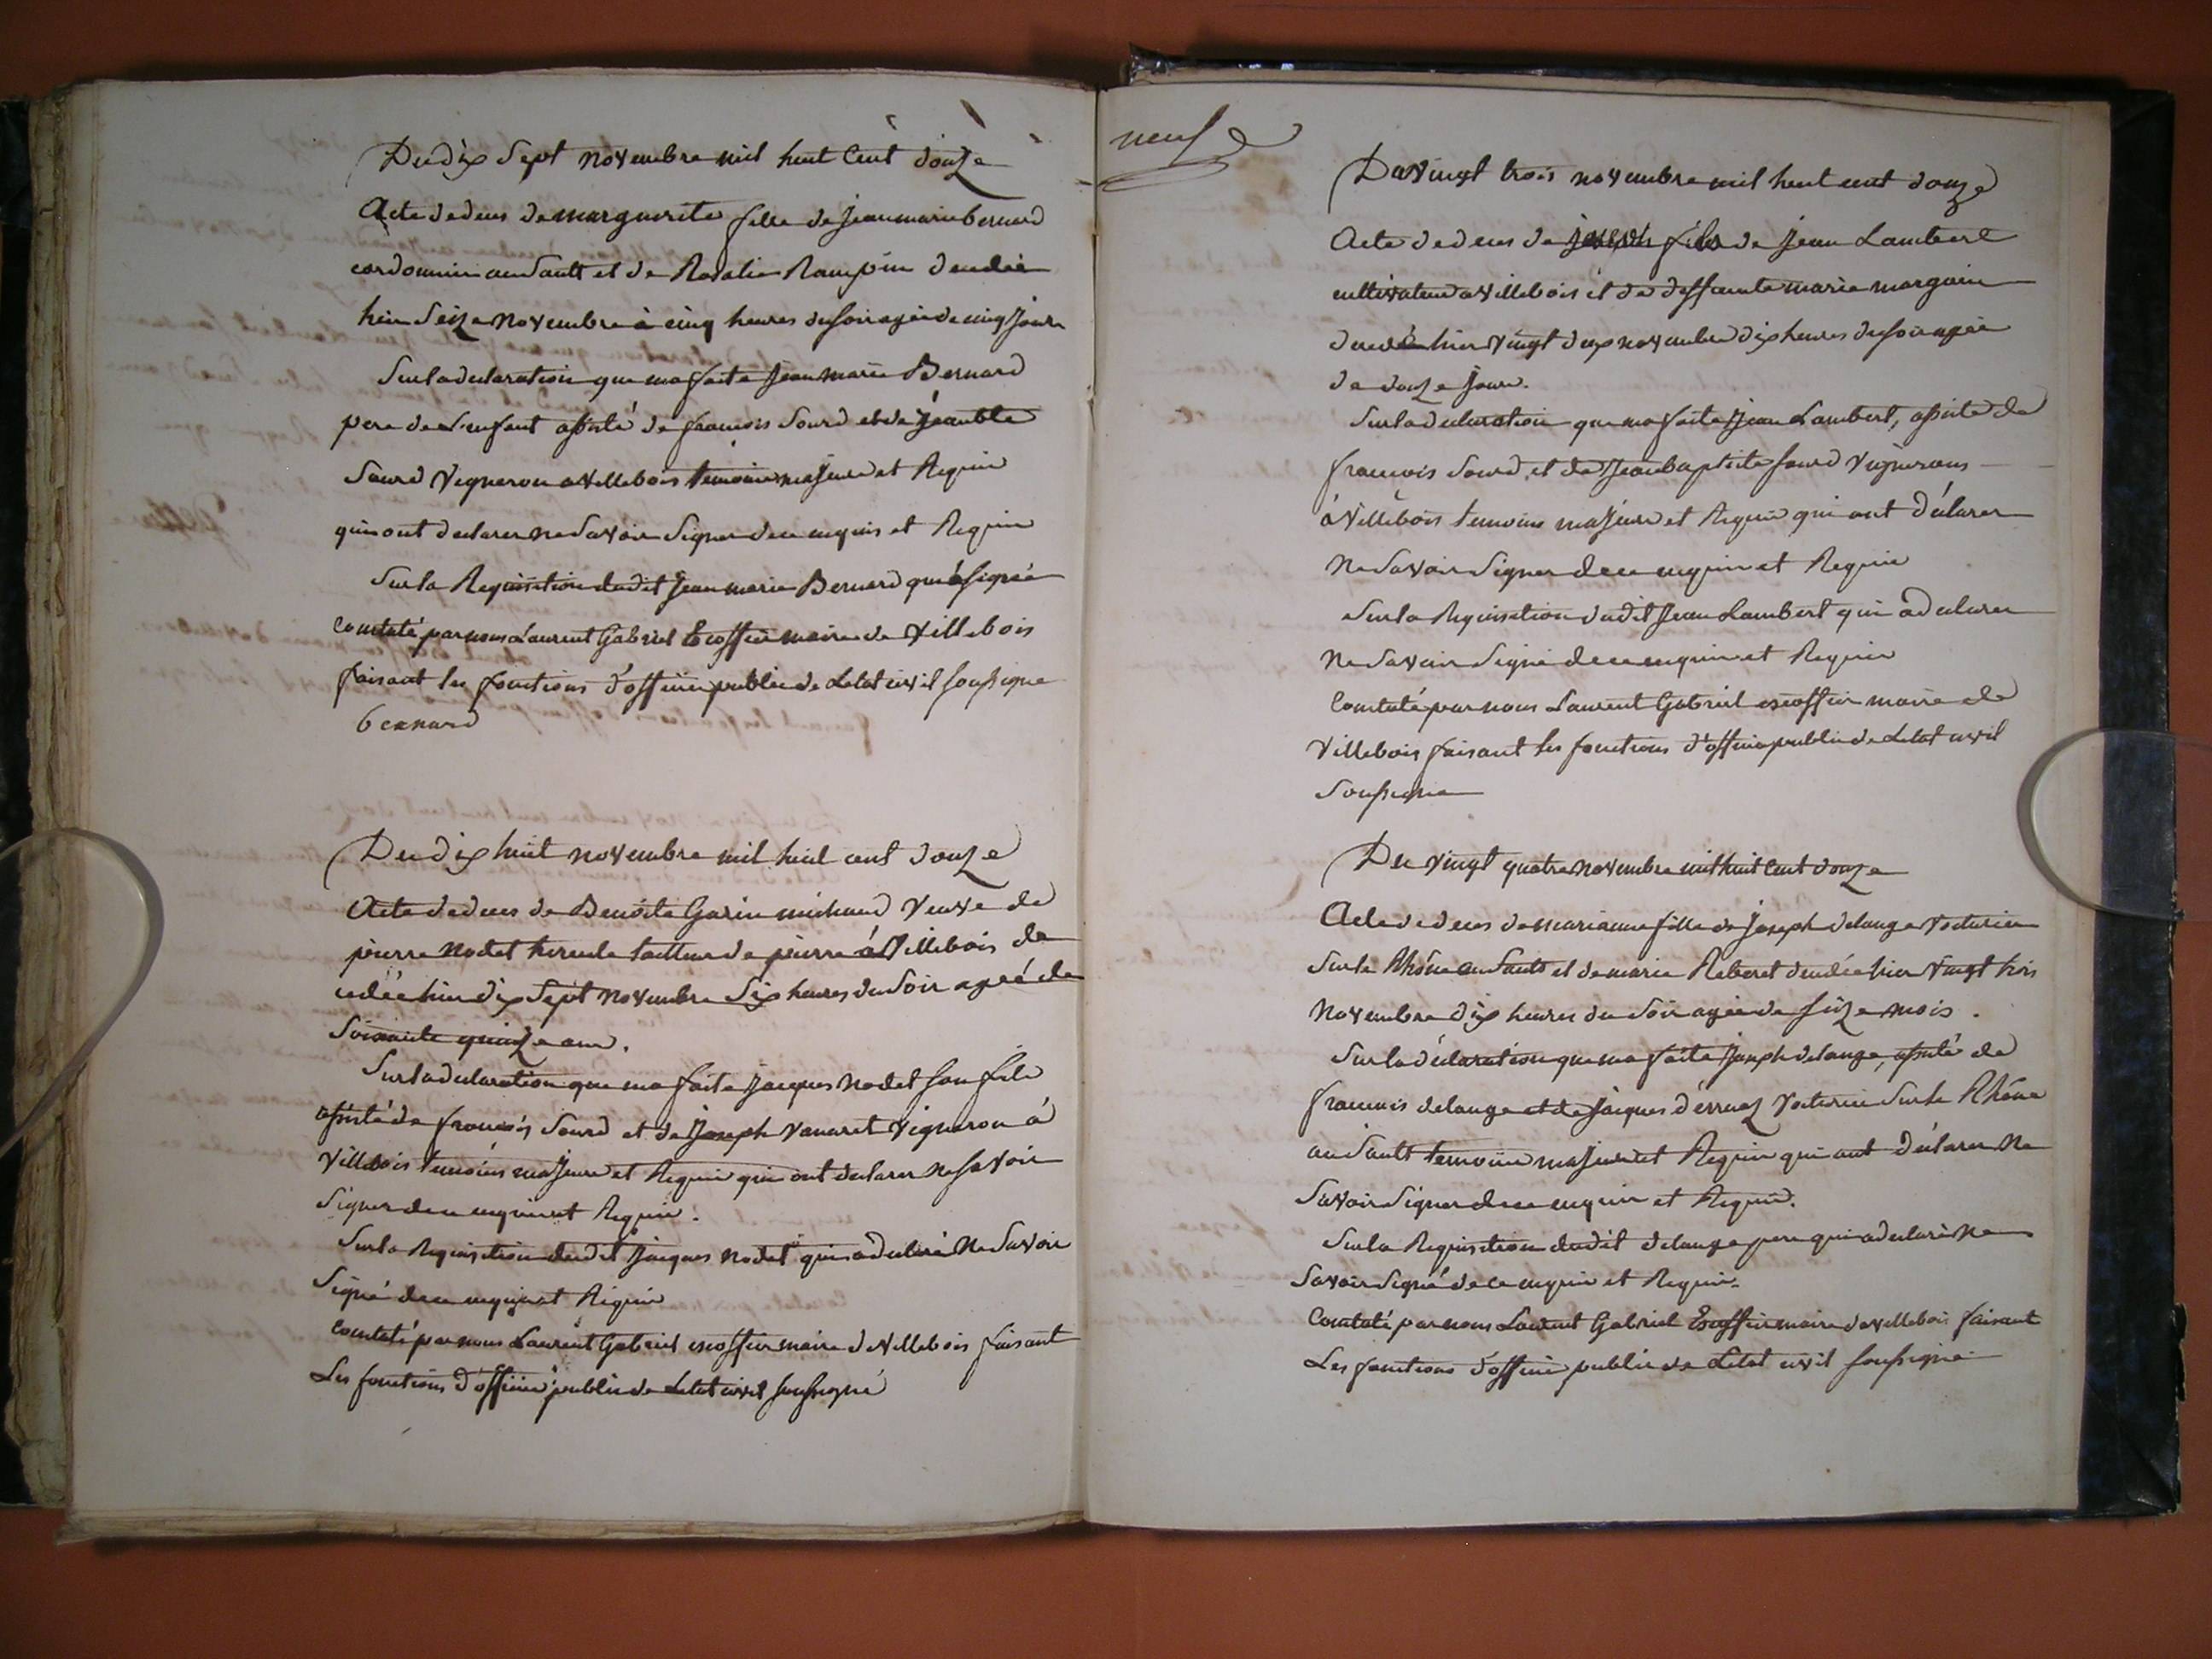 Du dix Sept novembre mil huit Cent douze
Acte de deces de marguerite fille de Jean marie bernard
cordonnier au Sault et de Rosalie Rampin decedée
hier Seize novembre à cinq heures du soir agée de cinq Jours
Sur la declaration que ma faite Jean marie Bernard
pere de L'enfant assisté de francois Sourd et de Jean bte
Sourd Vigneron a Villebois temoins majeurs et Requis
qui ont declarer ne Savoir Signer de ce enquis et Requis
Sur la Requisition dudit Jean marie Bernard qui à signée
Constaté par nous Laurent Gabriel Escoffier maire de Villebois
faisant les fonctions d'officier public de Letat civil soussigne
bernard
Du dix huit novembre mil huit cent douze
Acte de deces de Benoite Garin michaud Veuve de
pierre nodet hercule tailleur de pierre à Villebois de
cedée hier dix Sept novembre Six heures du Soir agé de
Soixante quinze ans.
Sur la declaration que ma faite Jacques nodet son fils
assisté de francois Sourd et de Joseph Vanaret Vigneron à
Villebois temoins majeurs et Requis qui ont declarer ne savoir
Signer de ce enquis et Requis.
Sur la Requisition dudit Jacques nodet qui a declaré ne Savoir
Signé de ce enquis et Requis
Constaté par nous Laurent Gabriel escoffier maire de Villebois faisant
Les fonctions d'officier public de Letat civil soussigné
neuf
Du Vingt trois novembre mil huit cent douze
Acte de deces de joseph fils de Jean Lambert
cultivateur a Villebois et de deffeunte marie margain
decedé hier Vingt deux novembre dix heures du soir agée
de douze Jours.
Sur la declaration que ma faite Jean Lambert, assisté de
francois Sourd et de Jean baptiste sourd Vignerons
à Villebois temoins majeurs et Requis qui ont déclarer
ne Savoir Signer de ce enquis et Requis
Sur la Requisition dudit Jean Lambert qui à declarer
ne Savoir Signé de ce enquis et Requis
Constaté par nous Laurent Gabriel escoffier maire de
Villebois faisant les fonctions d'officier public de Letat civil
Soussigne
Du Vingt quatre novembre mil huit Cent douze
Acte de deces de marianne fille de Joseph delange Voiturier
Sur le Rhône au Sault et de marie Reberet decedée hier Vingt trois
novembre dix heures du Soir agée de seize mois.
Sur la déclaration que ma faite Joseph delange, assisté de
francois delange et de Jacques derruaz Voiturier Sur le Rhône
au Sault temoins majeurs et Requis qui ont déclarer ne
Savoir Signer de ce enquis et Requis.
Sur la Requisition dudit delange pere qui a declaré ne
Savoir Signé de ce enquis et Requis.
Constaté par nous Laurent Gabriel Escoffier maire de Villebois faisant
Les fonctions d'officier public de Letat civil soussigné